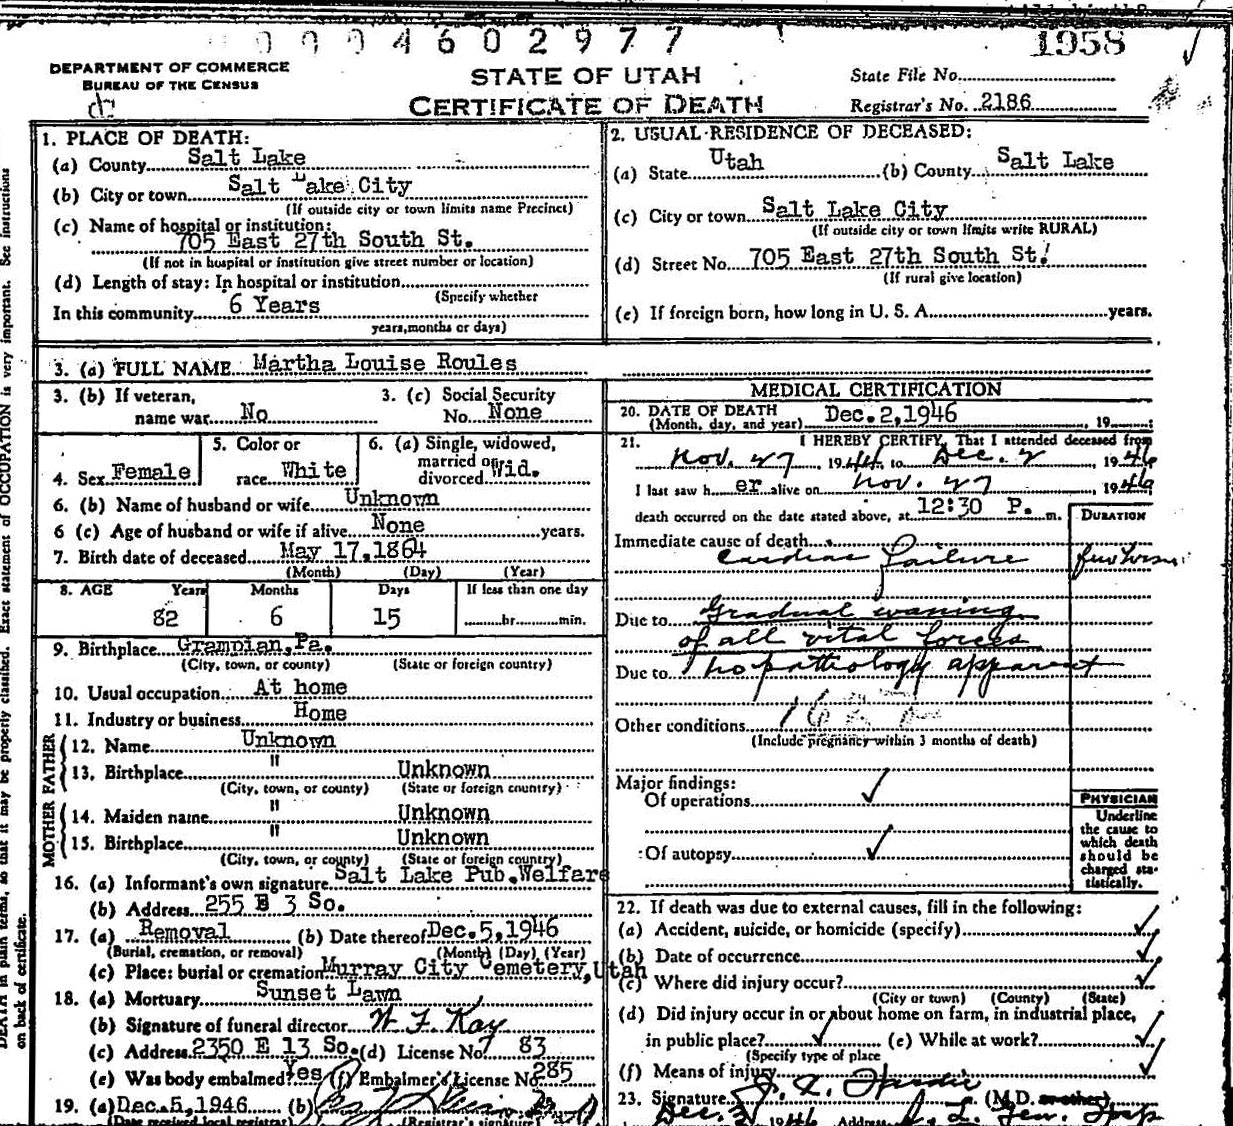 0004602977
1958
DEPARTMENT OF COMMERCE
BUREAU OF THE CENSUS
STATE OF UTAH
CERTIFICATE OF DEATH
State File No.
Registrar's No. 2186
1. PLACE OF DEATH:
(a) County Salt Lake
(b) City or town Salt Lake City
(If outside city or town limits name Precinct)
(c) Name of hospital or institution:
705 East 27th South St.
(If not in hospital or institution give street number or location)
(d) Length of stay: In hospital or institution
(Specify whether
In this community 6 Years
years, months or days)
2. USUAL RESIDENCE OF DECEASED:
(a) State Utah (b) County Salt Lake
(c) City or town Salt Lake City
(If outside city or town limits write RURAL)
(d) Street No. 705 East 27th South St.
(If rural give location)
(e) If foreign born, how long in U. S. A. years.
3. (a) FULL NAME Martha Louise Roules
3. (b) If veteran,
name war No
3. (c) Social Security
No. None
4. Sex Female
5. Color or
race White
6. (a) Single, widowed,
married or
divorced Wid.
6. (b) Name of husband or wife Unknown
6 (c) Age of husband or wife if alive None years.
7. Birth date of deceased May 17, 1864
(Month) (Day) (Year)
8. AGE Years Months Days If less than one day
82 6 15 hr. min.
9. Birthplace Grampian, Pa.
(City, town, or county) (State or foreign country)
10. Usual occupation At home
11. Industry or business Home
FATHER
12. Name Unknown
13. Birthplace " Unknown
(City, town, or county) (State or foreign country)
MOTHER
14. Maiden name " Unknown
15. Birthplace " Unknown
(City, town, or county) (State or foreign country)
16. (a) Informant's own signature Salt Lake Pub. Welfare
(b) Address 255 E 3 So.
17. (a) Removal (b) Date thereof Dec. 5, 1946
(Burial, cremation, or removal) (Month) (Day) (Year)
(c) Place: burial or cremation Murray City Cemetery, Utah
18. (a) Mortuary Sunset Lawn
(b) Signature of funeral director W. F. Kay
(c) Address 2350 E 13 So. (d) License No. 83
(e) Was body embalmed? Yes (f) Embalmer's License No. 285
19. (a) Dec. 5, 1946 (b)
(Date received local registrar) (Registrar's signature)
MEDICAL CERTIFICATION
20. DATE OF DEATH Dec. 2, 1946
(Month, day, and year) , 19
21. I HEREBY CERTIFY, That I attended deceased from
Nov. 27, 1944, to Dec. 2, 1946
I last saw her alive on Nov. 27, 1946
death occurred on the date stated above, at 12:30 P. m.
DURATION
Immediate cause of death
Cardiac Failure
Due to Gradual waning
of all vital forces
Due to no pathology apparent
Other conditions 162
(Include pregnancy within 3 months of death)
Major findings:
Of operations
Of autopsy
PHYSICIAN
Underline
the cause to
which death
should be
charged sta-
tistically.
22. If death was due to external causes, fill in the following:
(a) Accident, suicide, or homicide (specify)
(b) Date of occurrence
(c) Where did injury occur?
(City or town) (County) (State)
(d) Did injury occur in or about home on farm, in industrial place,
in public place? (e) While at work?
(Specify type of place
(f) Means of injury
23. Signature (M.D. or other)
Dec. 3 1946 Address S. L. Gen. Hosp
DEATH in plain terms, so that it may be properly classified. Exact statement of OCCUPATION is very important. See instructions
on back of certificate.